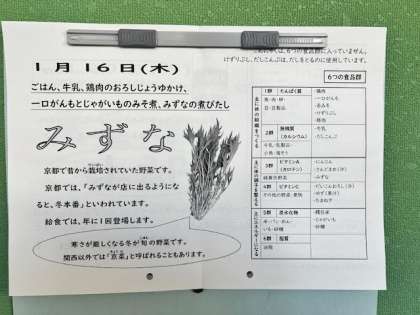 1月16日(木)
ごはん、牛乳、鶏肉のおろしじょうゆかけ、
一口がんもとじゃがいものみそ煮、みずなの煮びたし
みずな
京都で昔から栽培されていた野菜です。
京都では、「みずなが店に出るようにな
ると、冬本番」といわれています。
給食では、年に1回登場します。
寒さが厳しくなる冬が旬の野菜です。
関西以外では「京菜」と呼ばれることもあります。
は、6つの食品群に入っていません。
けずりぶし、だしこんぶは、だしをとるのに使用しています。
6つの食品群
1群 たんぱく質
魚・肉・卵
豆・豆製品
・鶏肉
・一口がんも
・赤みそ
・けずりぶし
2群 無機質
(カルシウム)
牛乳・乳製品
小魚・海そう
・牛乳
・だしこんぶ
3群 ビタミンA
(カロテン)
緑黄色野菜
・にんじん
・みずな
4群 ビタミンC
その他の野菜・果物
・しょうが
・たまねぎ
5群 炭水化物
いも・砂糖
・じゃがいも
・砂糖
6群 脂質
油脂